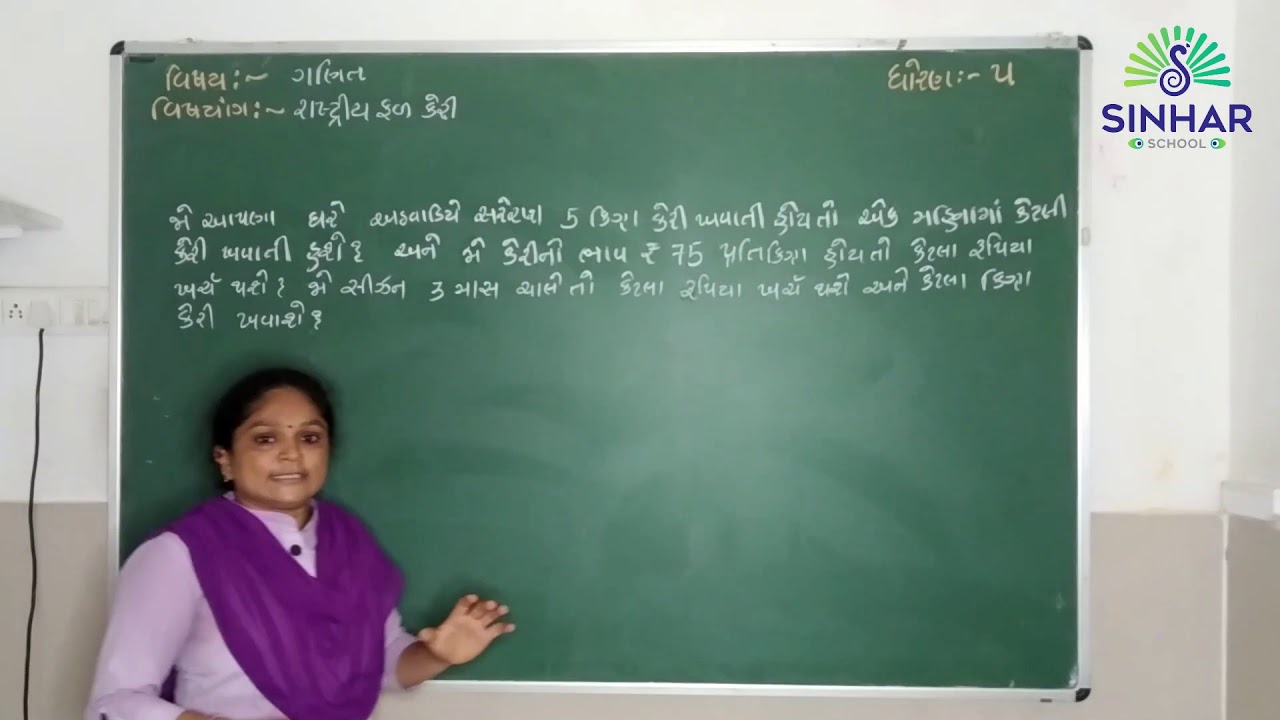 વિષય:~ ગણિત
ધોરણ:- ૫
વિષયાંગ:~ રાષ્ટ્રીય ફળ કેરી
SINHAR
SCHOOL
જો આપણા ઘરે અઠવાડિયે સરેરાશ 5 કિગ્રા કેરી ખવાતી હોય તો એક મહિનામાં કેટલી
કેરી ખવાની હશે ? અને જો કેરીનો ભાવ ₹ 75 પ્રતિકિગ્રા હોય તો કેટલા રૂપિયા
ખર્ચ થશે ? જો સીઝન 3 માસ ચાલે તો કેટલા રૂપિયા ખર્ચ થશે અને કેટલા કિગ્રા
કેરી ખવાશે ?